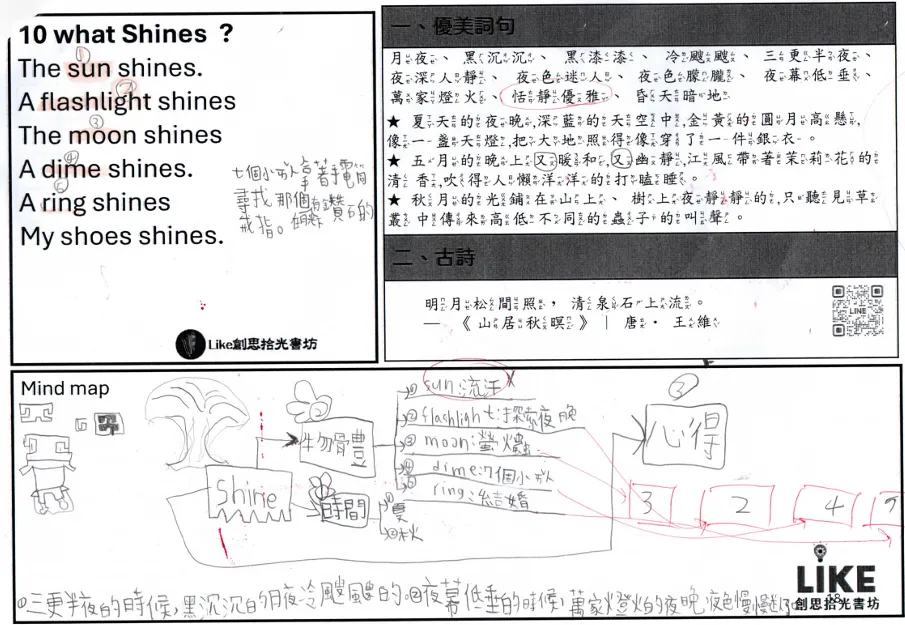 10 what Shines ?
①
The sun shines.
②
A flashlight shines
③
The moon shines
④
A dime shines.
⑤
A ring shines
My shoes shines.
七個小矮人拿著手電筒
尋找那個有鑽石的
戒指。
Like創思拾光書坊
一、優美詞句
月夜、黑沉沉、黑漆漆、冷颼颼、三更半夜、
夜深人靜、夜色迷人、夜色朦朧、夜幕低垂、
萬家燈火、恬靜優雅、昏天暗地
★ 夏天的夜晚,深藍的天空中,金黃的圓月高懸,
像一盞天燈,把大地照得像穿了一件銀衣。
★ 五月的晚上又暖和,又幽靜,江風帶著茉莉花的
清香,吹得人懶洋洋的打瞌睡。
★ 秋月的光鋪在山上、樹上,夜靜靜的,只聽見草
叢中傳來高低不同的蟲子的叫聲。
二、古詩
明月松間照，清泉石上流。
—《山居秋暝》｜唐・王維
LINE
Mind map
Shine
②
物體
①sun:流汗
②flashlight:探索夜晚
③moon:螢火蟲
④dime:7個小矮人
⑤ring:結婚
時間
①夏
②秋
③
心得
3 2 4
LIKE
創思拾光書坊
18
①三更半夜的時候,黑沉沉的月夜冷颼颼的。②夜幕低垂的時候,萬家燈火的夜晚,夜色慢慢